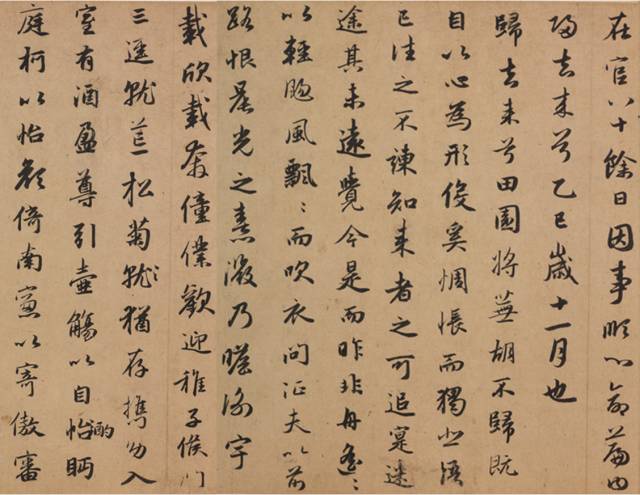 在官八十餘日因事順心命篇曰
歸去来兮乙巳歲十一月也
歸去来兮田園将蕪胡不歸既
自以心為形役奚惆悵而獨悲悟
已往之不諫知来者之可追寔迷
途其未遠覺今是而昨非舟遥〻
以輕颺風飄〻而吹衣問征夫以前
路恨晨光之熹微乃瞻衡宇
載欣載奔僮僕歡迎稚子候門
三逕就荒松菊就猶存携幼入
室有酒盈尊引壺觴以自怡酌眄
庭柯以怡顏倚南窻以寄傲審